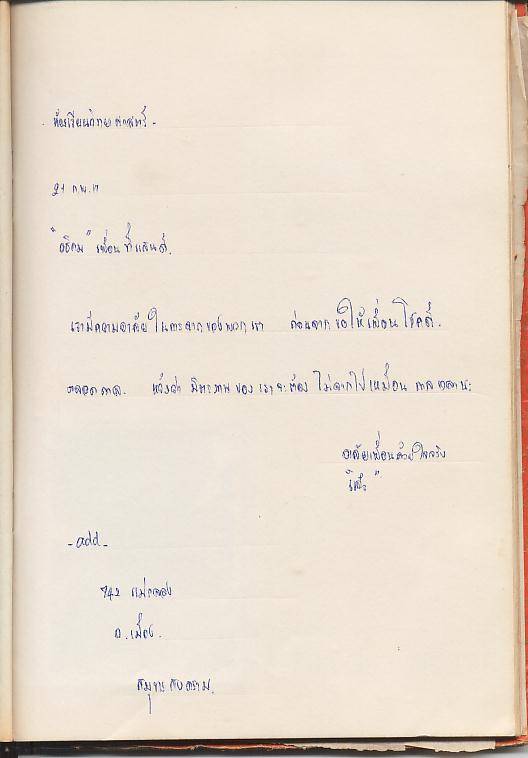 ห้องเรียนวิทยาศาสตร์ -
21 ก.พ. ๑๗
"อธิคม" เพื่อนที่แสนดี.
เรามีความอาลัยในการจากของพวกเรา ก่อนจากขอให้เพื่อนโชคดี.
ตลอดกาล. หวังว่ามิตรภาพของเราจะต้องไม่จากไปเหมือนกาลเวลานะ
อาลัยเพื่อนด้วยใจจริง
- add -
742 แม่กลอง
อ. เมือง.
สมุทรสงคราม.